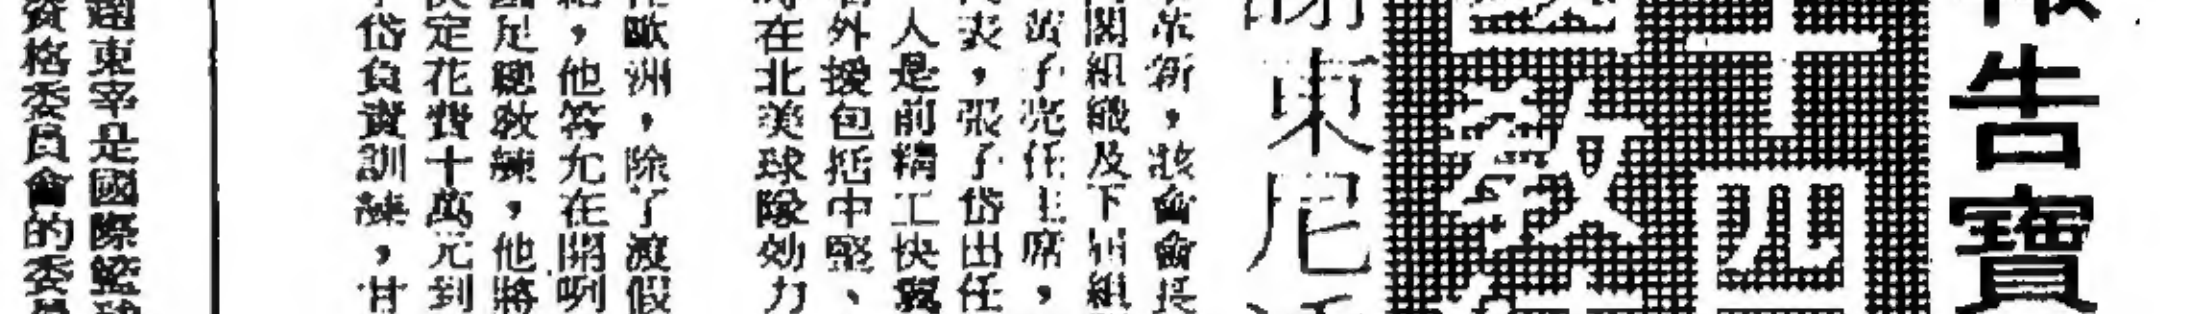 告寶
四
東尼
革新，該會會長
閣組織及下屆組
黃子亮任主席，
表，張子岱出任
人是前精工快翼
外援包括中堅、
在北美球隊効力
歐洲，除了渡假
，他答允在開咧
足總教練，他將
定花費十萬元到
岱負責訓練，甘
東宰是國際籃球
資格委員會的委員